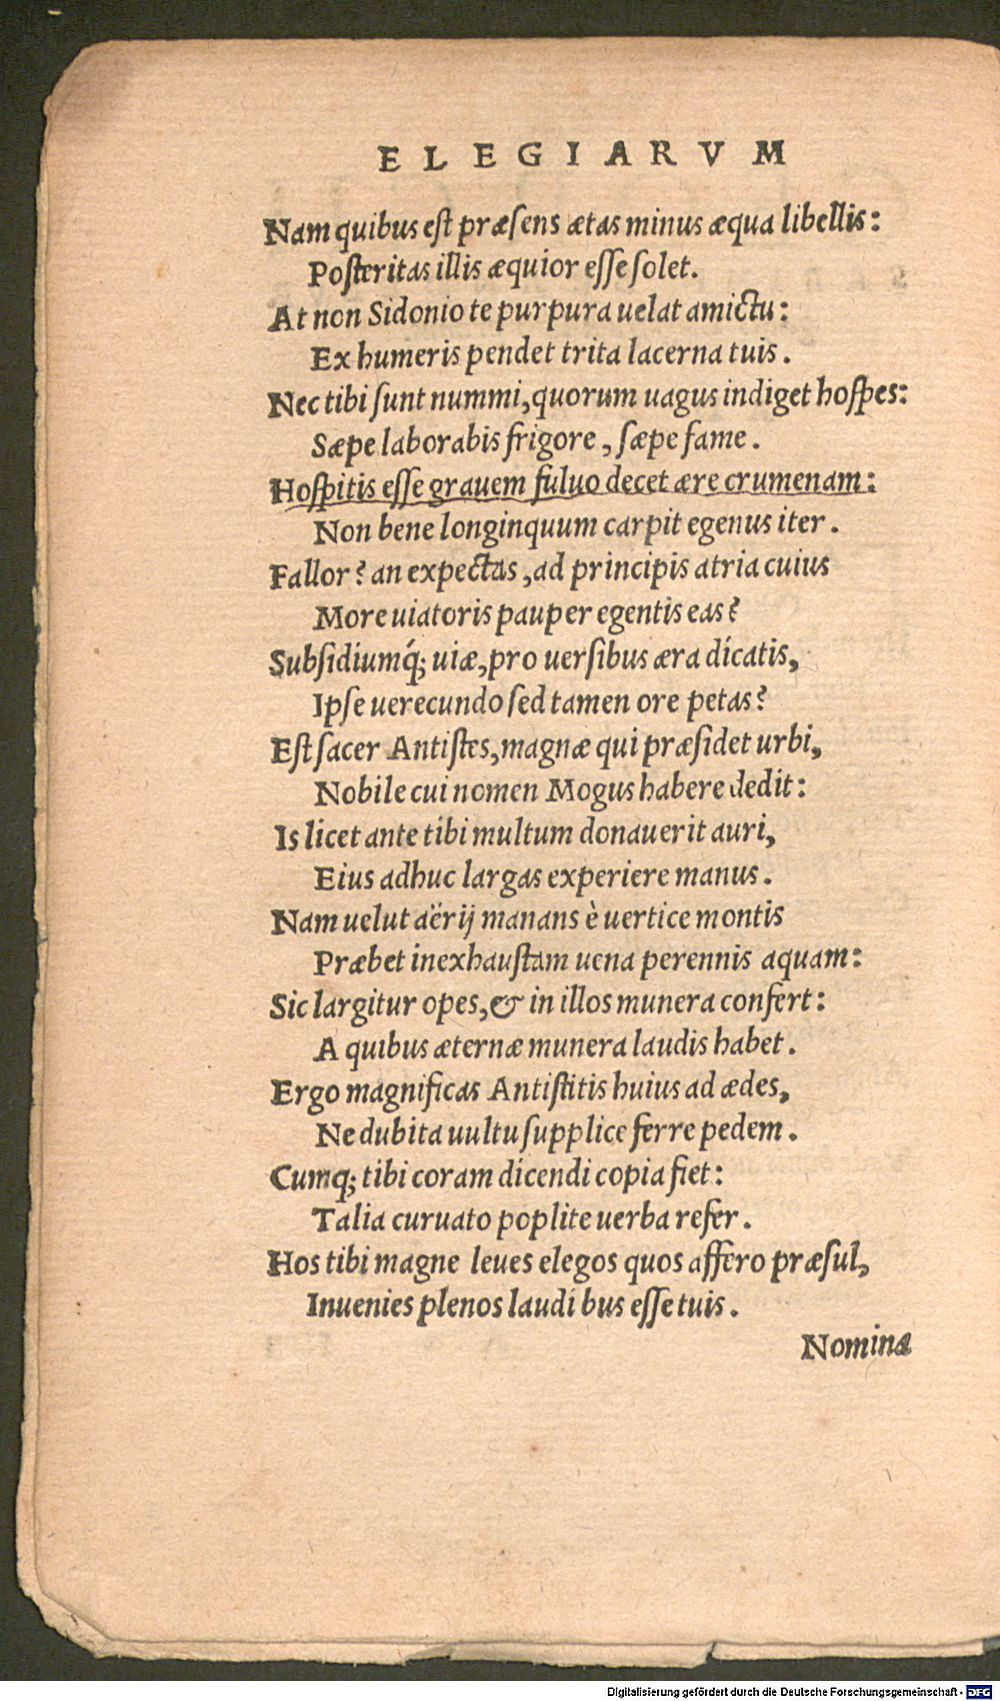 ELEGIARVM
Nam quibus est præsens ætas minus æqua libellis:
Posteritas illis æquior esse solet.
At non Sidonio te purpura uelat amictu:
Ex humeris pendet trita lacerna tuis.
Nec tibi sunt nummi, quorum uagus indiget hospes:
Sæpe laborabis frigore, sæpe fame.
Hospitis esse grauem fuluo decet ære crumenam:
Non bene longinquum carpit egenus iter.
Fallor? an expectas, ad principis atria cuius
More uiatoris pauper egentis eas?
Subsidiumq́; uiæ, pro uersibus æra dicatis,
Ipse uerecundo sed tamen ore petas?
Est sacer Antistes, magnæ qui præsidet urbi,
Nobile cui nomen Mogus habere dedit:
Is licet ante tibi multum donauerit auri,
Eius adhuc largas experiere manus.
Nam uelut aërij manans è uertice montis
Præbet inexhaustam uena perennis aquam:
Sic largitur opes, & in illos munera confert:
A quibus æternæ munera laudis habet.
Ergo magnificas Antistitis huius ad ædes,
Ne dubita uultu supplice ferre pedem.
Cumq; tibi coram dicendi copia fiet:
Talia curuato poplite uerba refer.
Hos tibi magne leues elegos quos affero præsul,
Inuenies plenos laudi bus esse tuis.
Nominæ
Digitalisierung gefördert durch die Deutsche Forschungsgemeinschaft - DFG